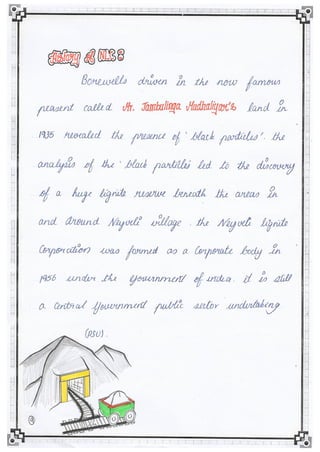 History of NLC :
Borewells driven in the now famous
peasent called Mr. Jambulinga Mudhaliyar's land in
1935 revealed the presence of 'black particles'. the
analysis of the 'black particles' led to the discovery
of a huge lignite reserve beneath the areas in
and around Neyveli village. the Neyveli lignite
Corporation was formed as a Corporate body in
1956 under the government of india. it is still
a Central Government public sector undertaking
(PSU).